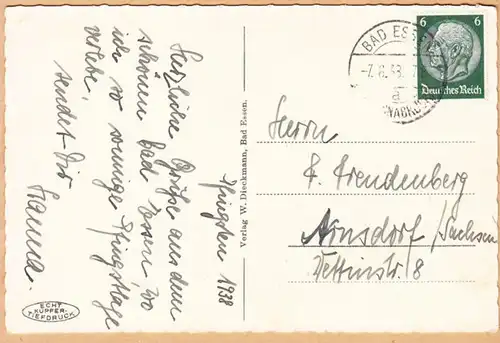 Pfingsten 1938
Herzliche Grüße aus dem
schönen Bad Essen, wo
ich so sonnige Pfingsttage
verlebe,
sendet Dir
Hanna.
ECHT
KUPFER-
TIEFDRUCK
Verlag W. Dieckmann, Bad Essen.
6 6
Deutsches Reich
BAD ESSEN
-7.6.38.
a
Herrn
F. Freudenberg
Arnsdorf/Sachsen
Wettinstr. 8